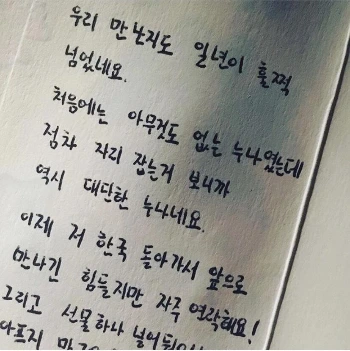 우리 만난지도 일년이 훌쩍
넘었네요.
처음에는 아무것도 없는 누나였는데
점차 자리 잡는거 보니까
역시 대단한 누나네요.
이제 저 한국 돌아가서 앞으로
만나긴 힘들지만 자주 연락해요!
그리고 선물하나 넣어뒀
아프지